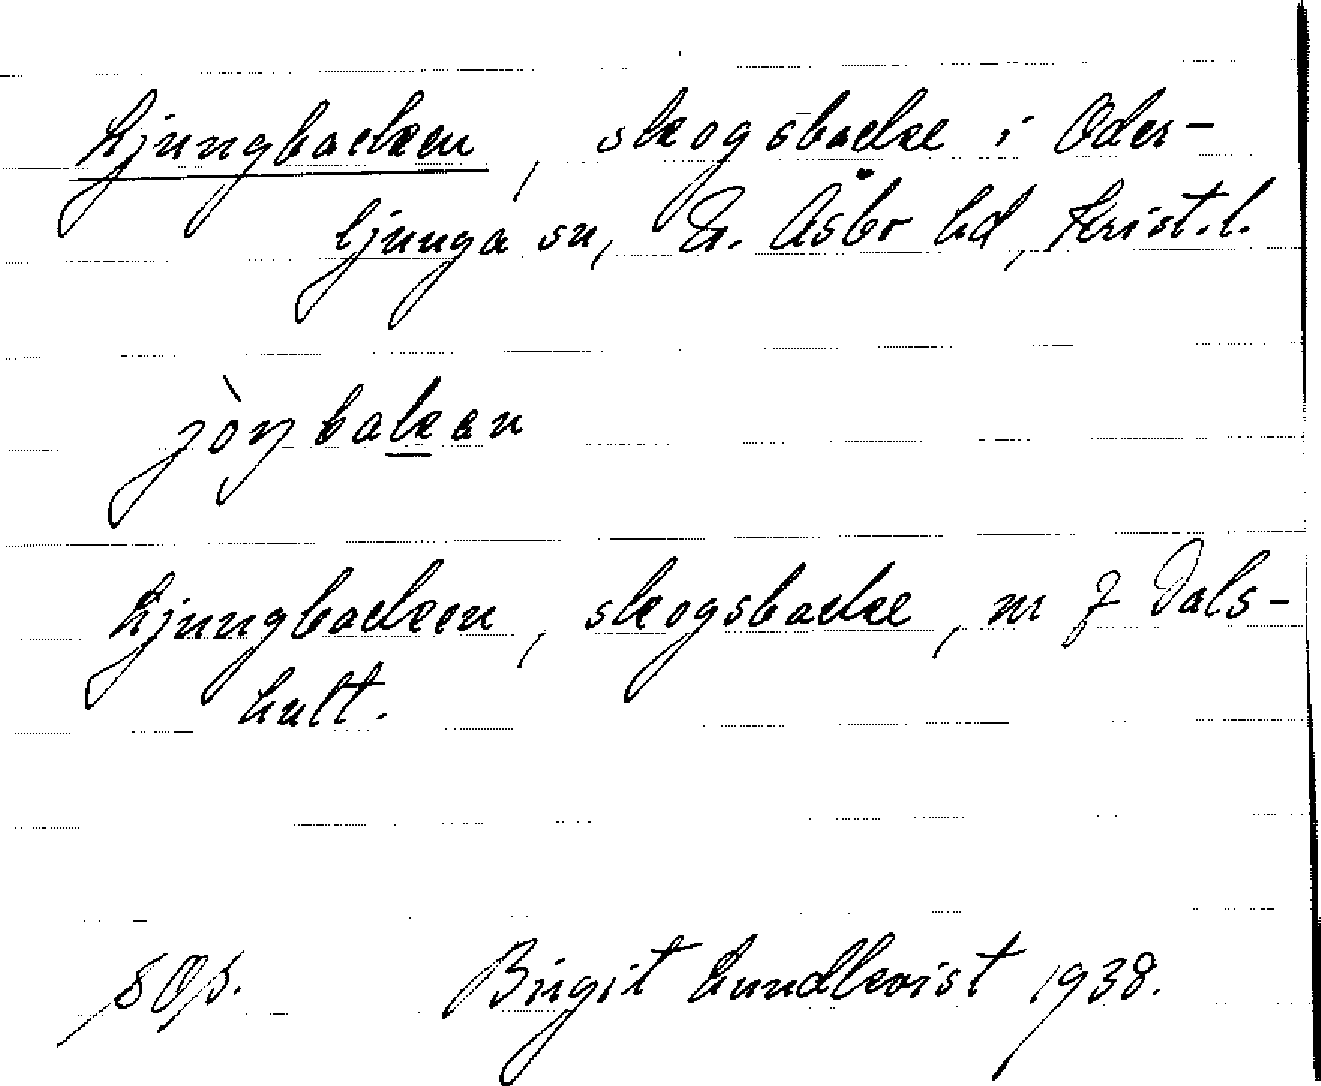 Ljungbacken, skogsbacke i Oder-
ljunga sn, N. Åsbo hd, Krist. l.
jòŋbakan
Ljungbacken, skogsbacke, m f Dals-
hult.
Birgit Lundkvist 1938.